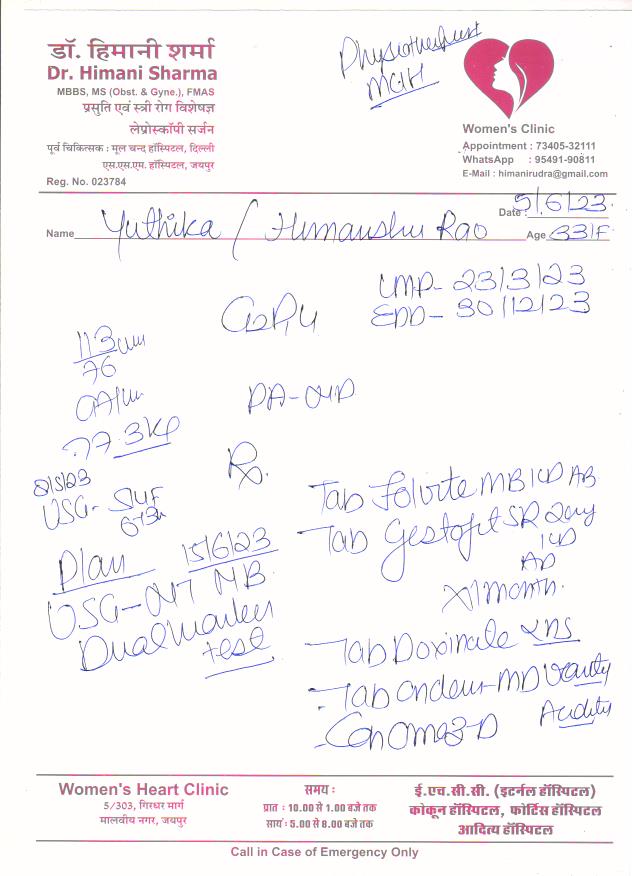 डॉ. हिमानी शर्मा
Dr. Himani Sharma
MBBS, MS (Obst. & Gyne.), FMAS
प्रसुति एवं स्त्री रोग विशेषज्ञ
लेप्रोस्कॉपी सर्जन
पूर्व चिकित्सक : मूल चन्द हॉस्पिटल, दिल्ली
एस.एस.एम. हॉस्पिटल, जयपुर
Reg. No. 023784
Physiotherapist
MGH
Women's Clinic
Appointment : 73405-32111
WhatsApp : 95491-90811
E-Mail : himanirudra@gmail.com
Date 5/6/23
Name Yuthika / Himanshu Rao Age 33/F
LMP- 23/3/23
EDD- 30/12/23
113
76
77.3kg
PA-
Rx.
8/5/23
USG- SLIUF
Tab Folvite MB 1 OD
Tab Gestofit SR
1 OD
x 1 month.
Plan 15/6/23
USG- NT NB
Dual Marker
test
Tab Doxinate
Tab Ondem-MD
Omez-D Acidity
Women's Heart Clinic
5/303, गिरधर मार्ग
मालवीय नगर, जयपुर
समय :
प्रात : 10.00 से 1.00 बजे तक
सायं : 5.00 से 8.00 बजे तक
ई.एच.सी.सी. (इटर्नल हॉस्पिटल)
कोकून हॉस्पिटल, फोर्टिस हॉस्पिटल
आदित्य हॉस्पिटल
Call in Case of Emergency Only